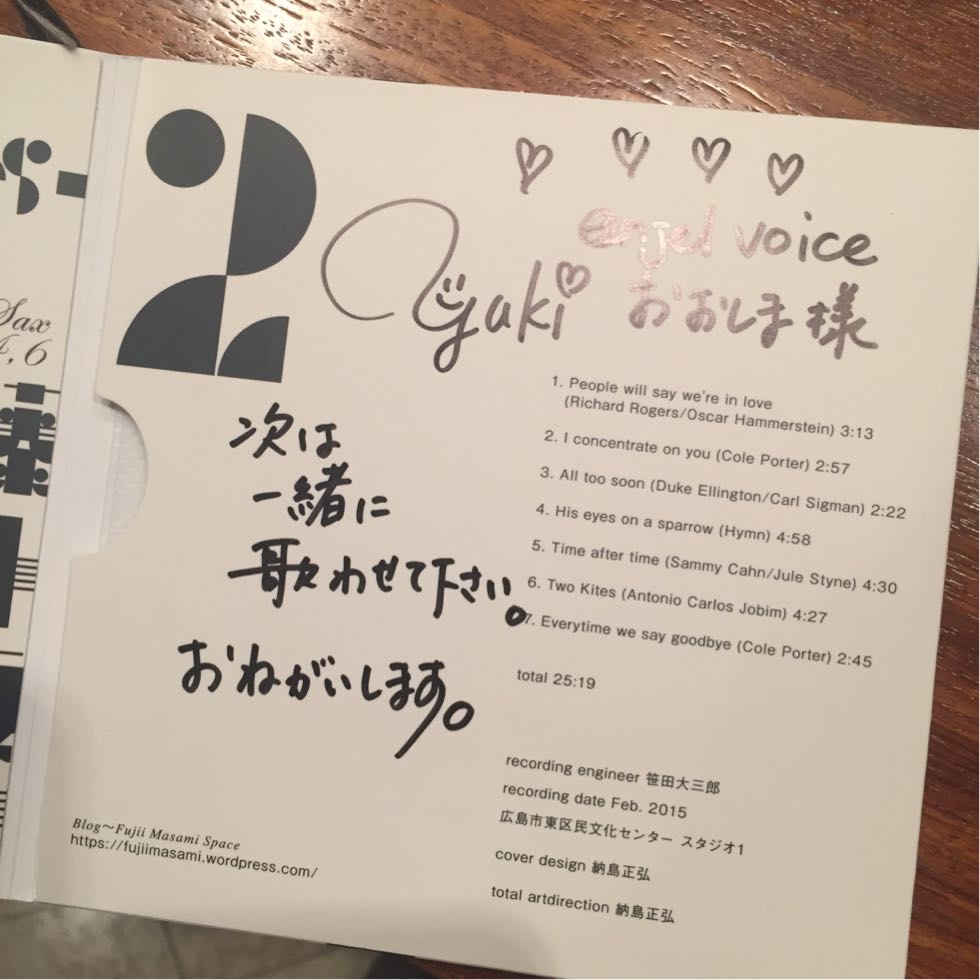 Sax
4, 6
2
anjel voice
yuki おおしま様
次は
一緒に
歌わせて下さい。
おねがいします。
1. People will say we're in love
(Richard Rogers/Oscar Hammerstein) 3:13
2. I concentrate on you (Cole Porter) 2:57
3. All too soon (Duke Ellington/Carl Sigman) 2:22
4. His eyes on a sparrow (Hymn) 4:58
5. Time after time (Sammy Cahn/Jule Styne) 4:30
6. Two Kites (Antonio Carlos Jobim) 4:27
7. Everytime we say goodbye (Cole Porter) 2:45
total 25:19
recording engineer 笹田大三郎
recording date Feb. 2015
広島市東区民文化センター スタジオ1
cover design 納島正弘
total artdirection 納島正弘
Blog〜Fujii Masami Space
https://fujiimasami.wordpress.com/